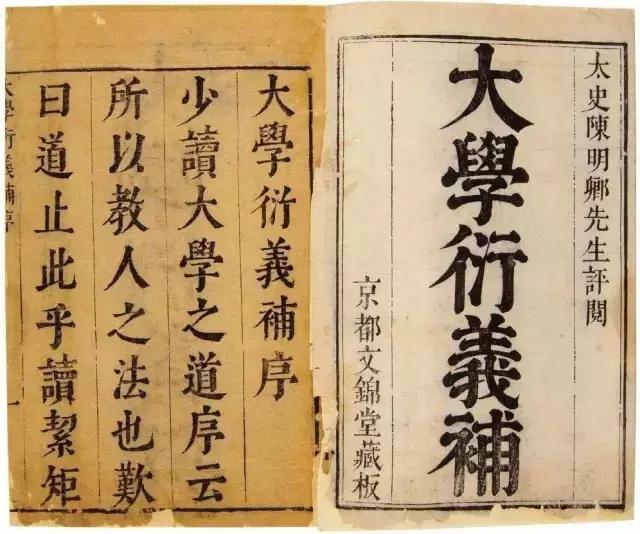 太史陳明卿先生評閱
大學衍義補
京都文錦堂藏板
大學衍義補序
少讀大學之道序云
所以教人之法也歎
曰道止此乎讀絜矩
大學衍義補序
一